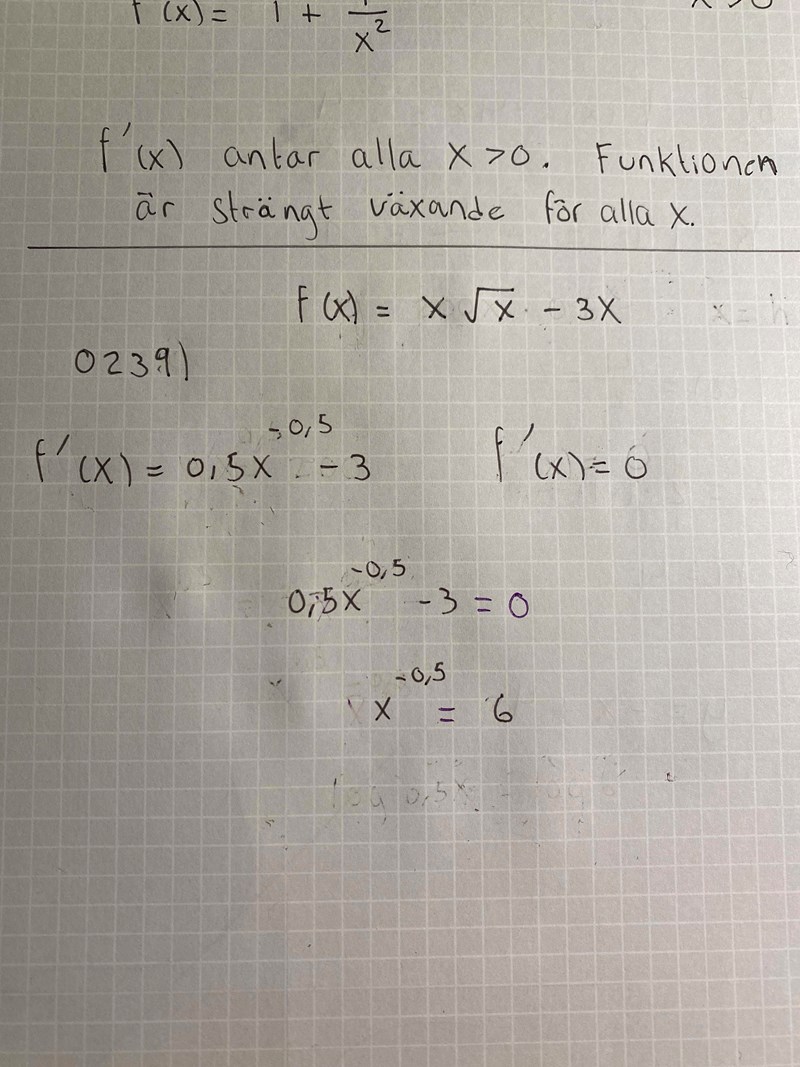 f'(x) = 1 + 1/x² x > 0
f'(x) antar alla x > 0. Funktionen
är strängt växande för alla x.
f(x) = x√x - 3x
0239)
f'(x) = 0,5x^-0,5 - 3 f'(x) = 0
0,5x^-0,5 - 3 = 0
x^-0,5 = 6